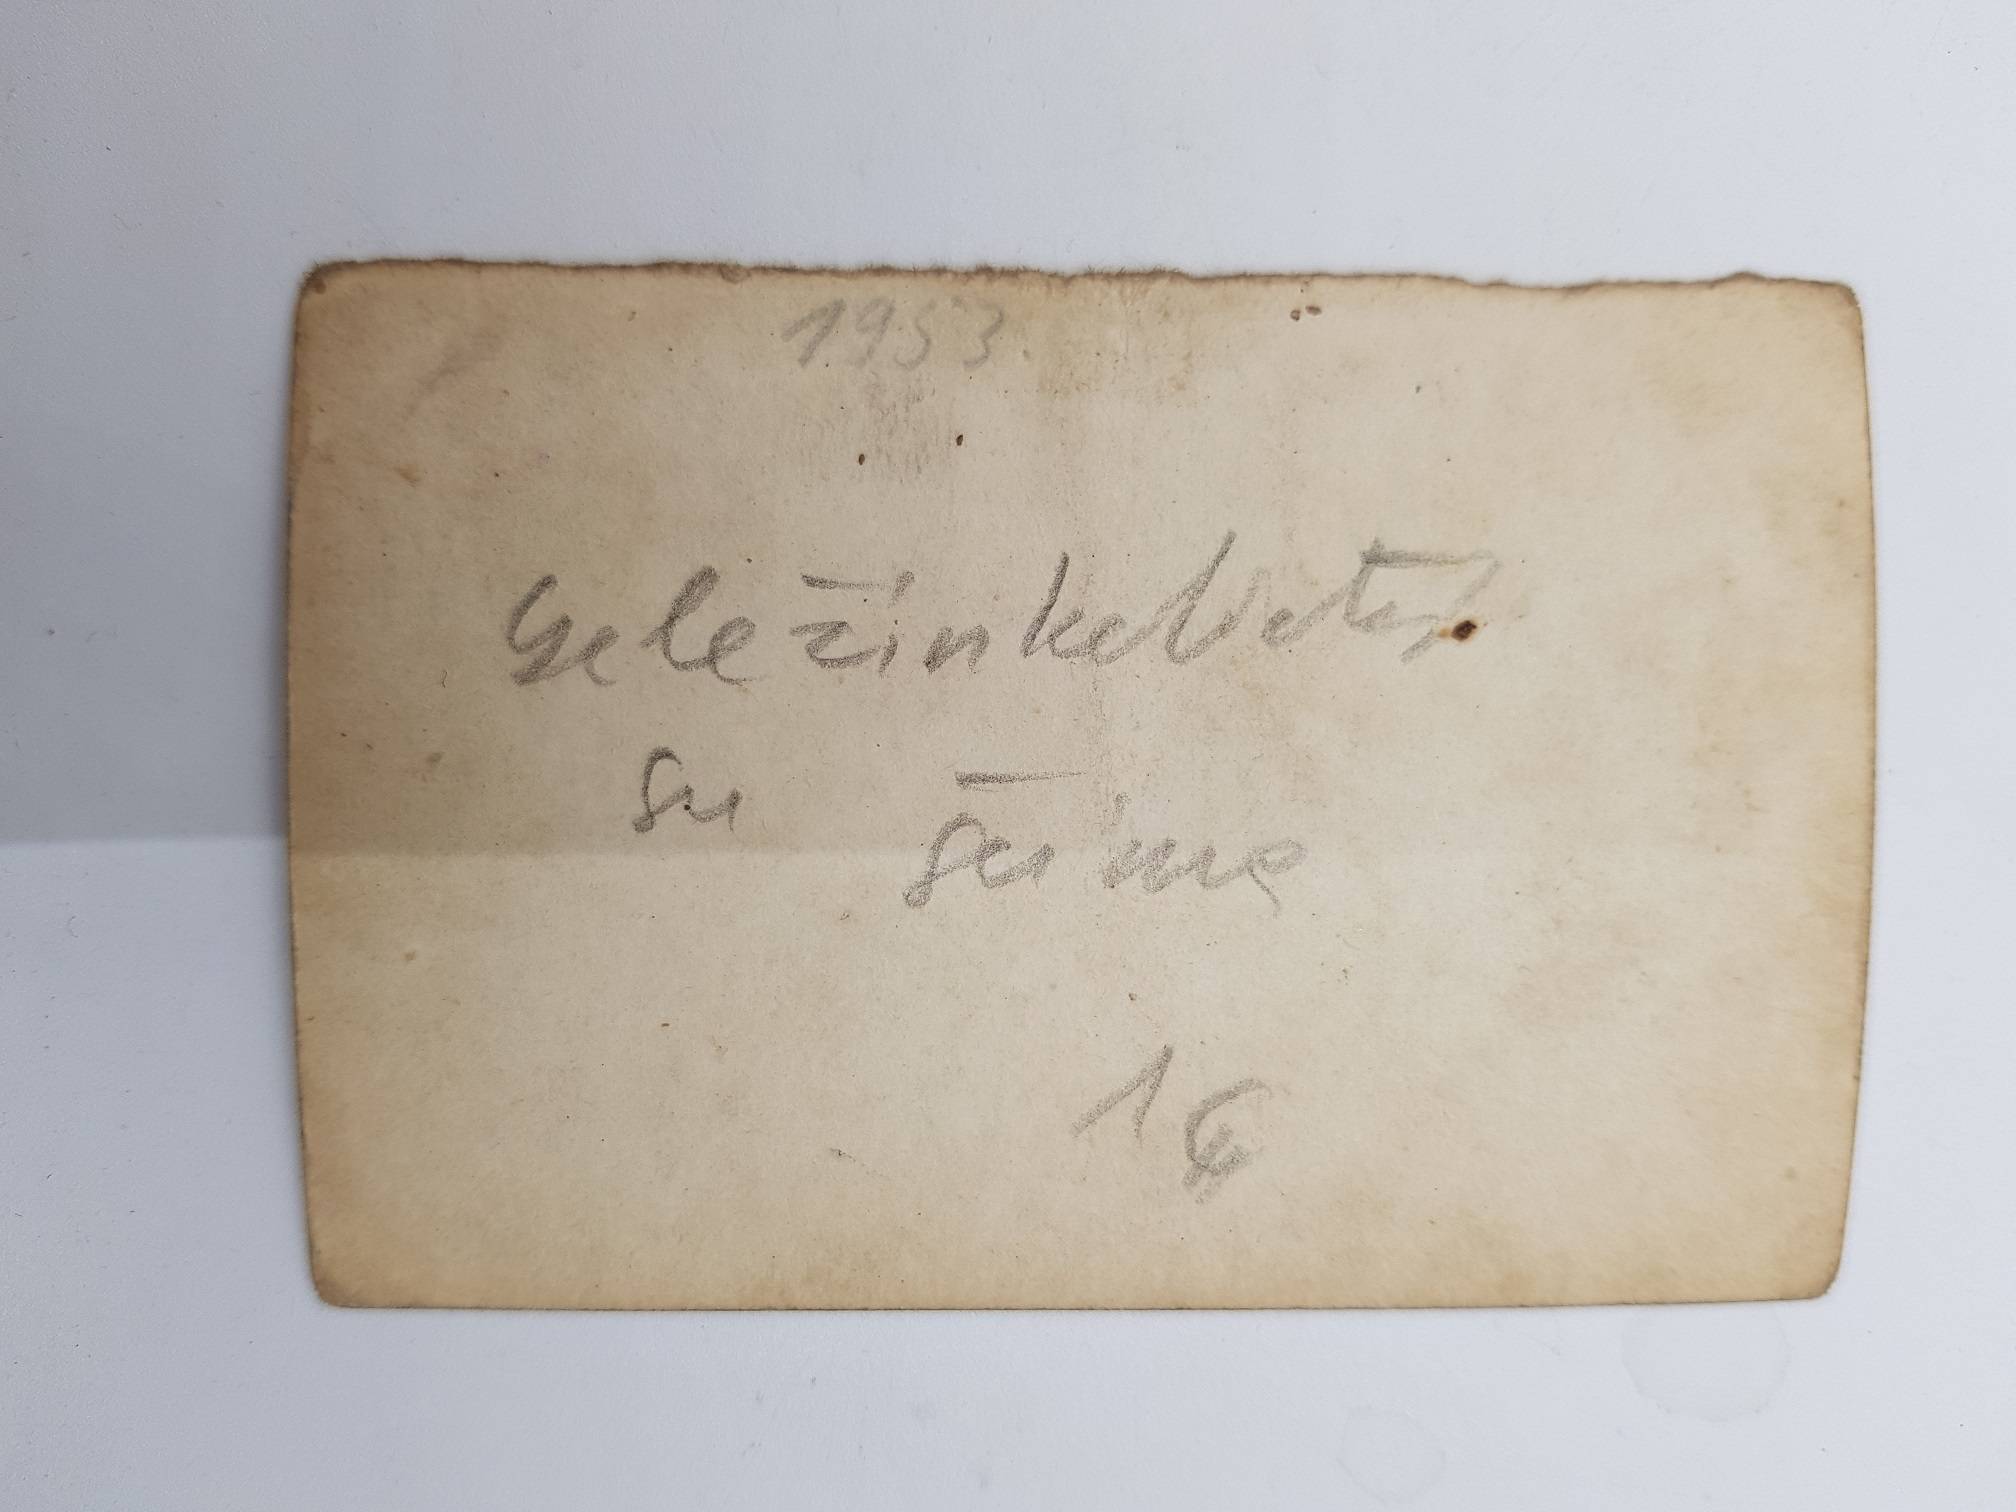 1953
Geležinkelietis
su šeima